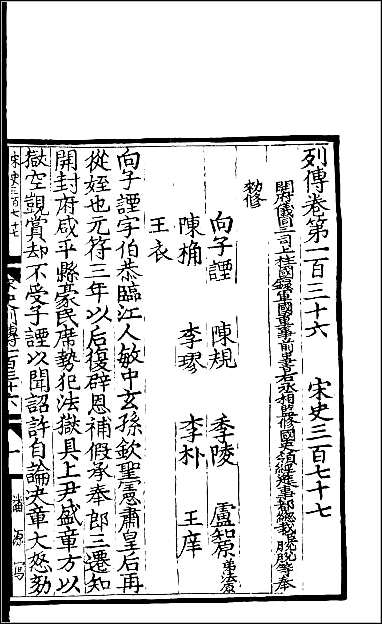 列傳卷第一百三十六　宋史三百七十七
開府儀同三司上柱國錄軍國重事前中書右丞相監修國史領經筵事都總裁脫脫等奉
勅修
向子諲　陳規　季陵　盧知原弟法原
陳桷　李璆　李朴　王庠
王衣
向子諲字伯恭臨江人敏中玄孫欽聖憲肅皇后再
從姪也元符三年以后復辟恩補假承奉郎三遷知
開封府咸平縣豪民席勢犯法獄具上尹盛章方以
獄空覬賞却不受子諲以聞詔許自論決章大怒劾
宋史三百七十七
宋史列傳一百三十六
一
潘源寫